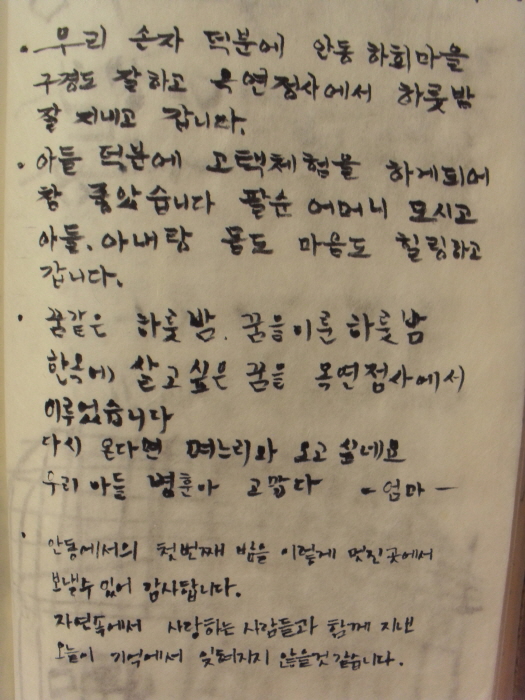 · 우리 손자 덕분에 안동 하회마을
구경도 잘하고 옥연정사에서 하룻밤
잘 지내고 갑니다.
· 아들 덕분에 고택체험을 하게되어
참 좋았습니다 팔순 어머니 모시고
아들, 아내랑 몸도 마음도 힐링하고
갑니다.
· 꿈같은 하룻밤. 꿈을이룬 하룻밤
한옥에 살고싶은 꿈을 옥연정사에서
이루었습니다
다시 온다면 며느리와 오고 싶네요
우리 아들 병훈아 고맙다 - 엄마 -
· 안동에서의 첫번째 밤을 이렇게 멋진곳에서
보낼수 있어 감사합니다.
자연속에서 사랑하는 사람들과 함께 지낸
오늘이 기억에서 잊혀지지 않을것 같습니다.